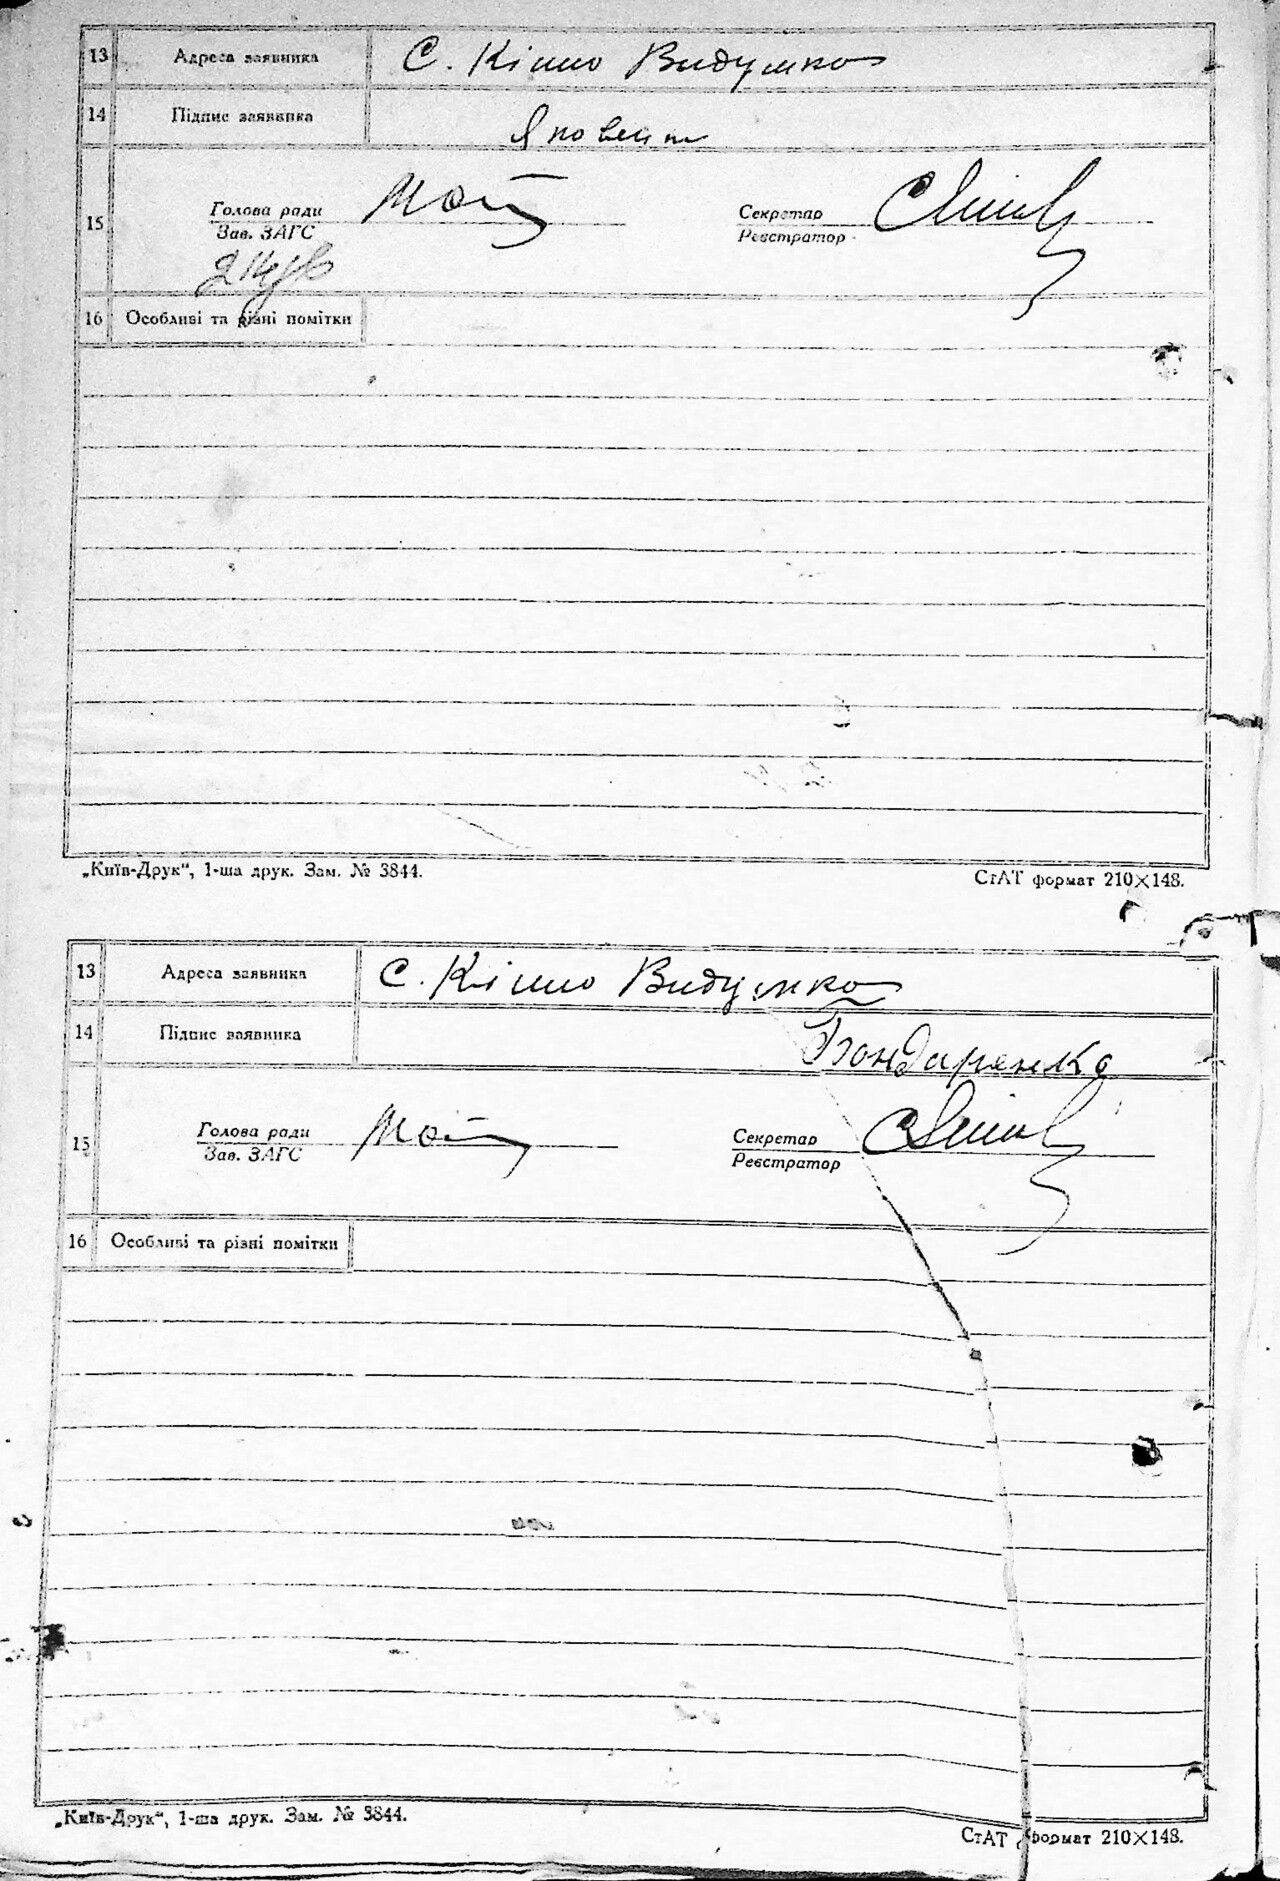 13 Адреса заявника С. Кішло Видумка
14 Підпис заявника Яковець
15 Голова ради Секретар
Зав. ЗАГС Реєстратор
16 Особливі та різні помітки
„Київ-Друк“, 1-ша друк. Зам. № 3844. СтАТ формат 210×148.
13 Адреса заявника С. Кішло Видумка
14 Підпис заявника Бондаренко
15 Голова ради Секретар
Зав. ЗАГС Реєстратор
16 Особливі та різні помітки
„Київ-Друк“, 1-ша друк. Зам. № 3844. СтАТ формат 210×148.